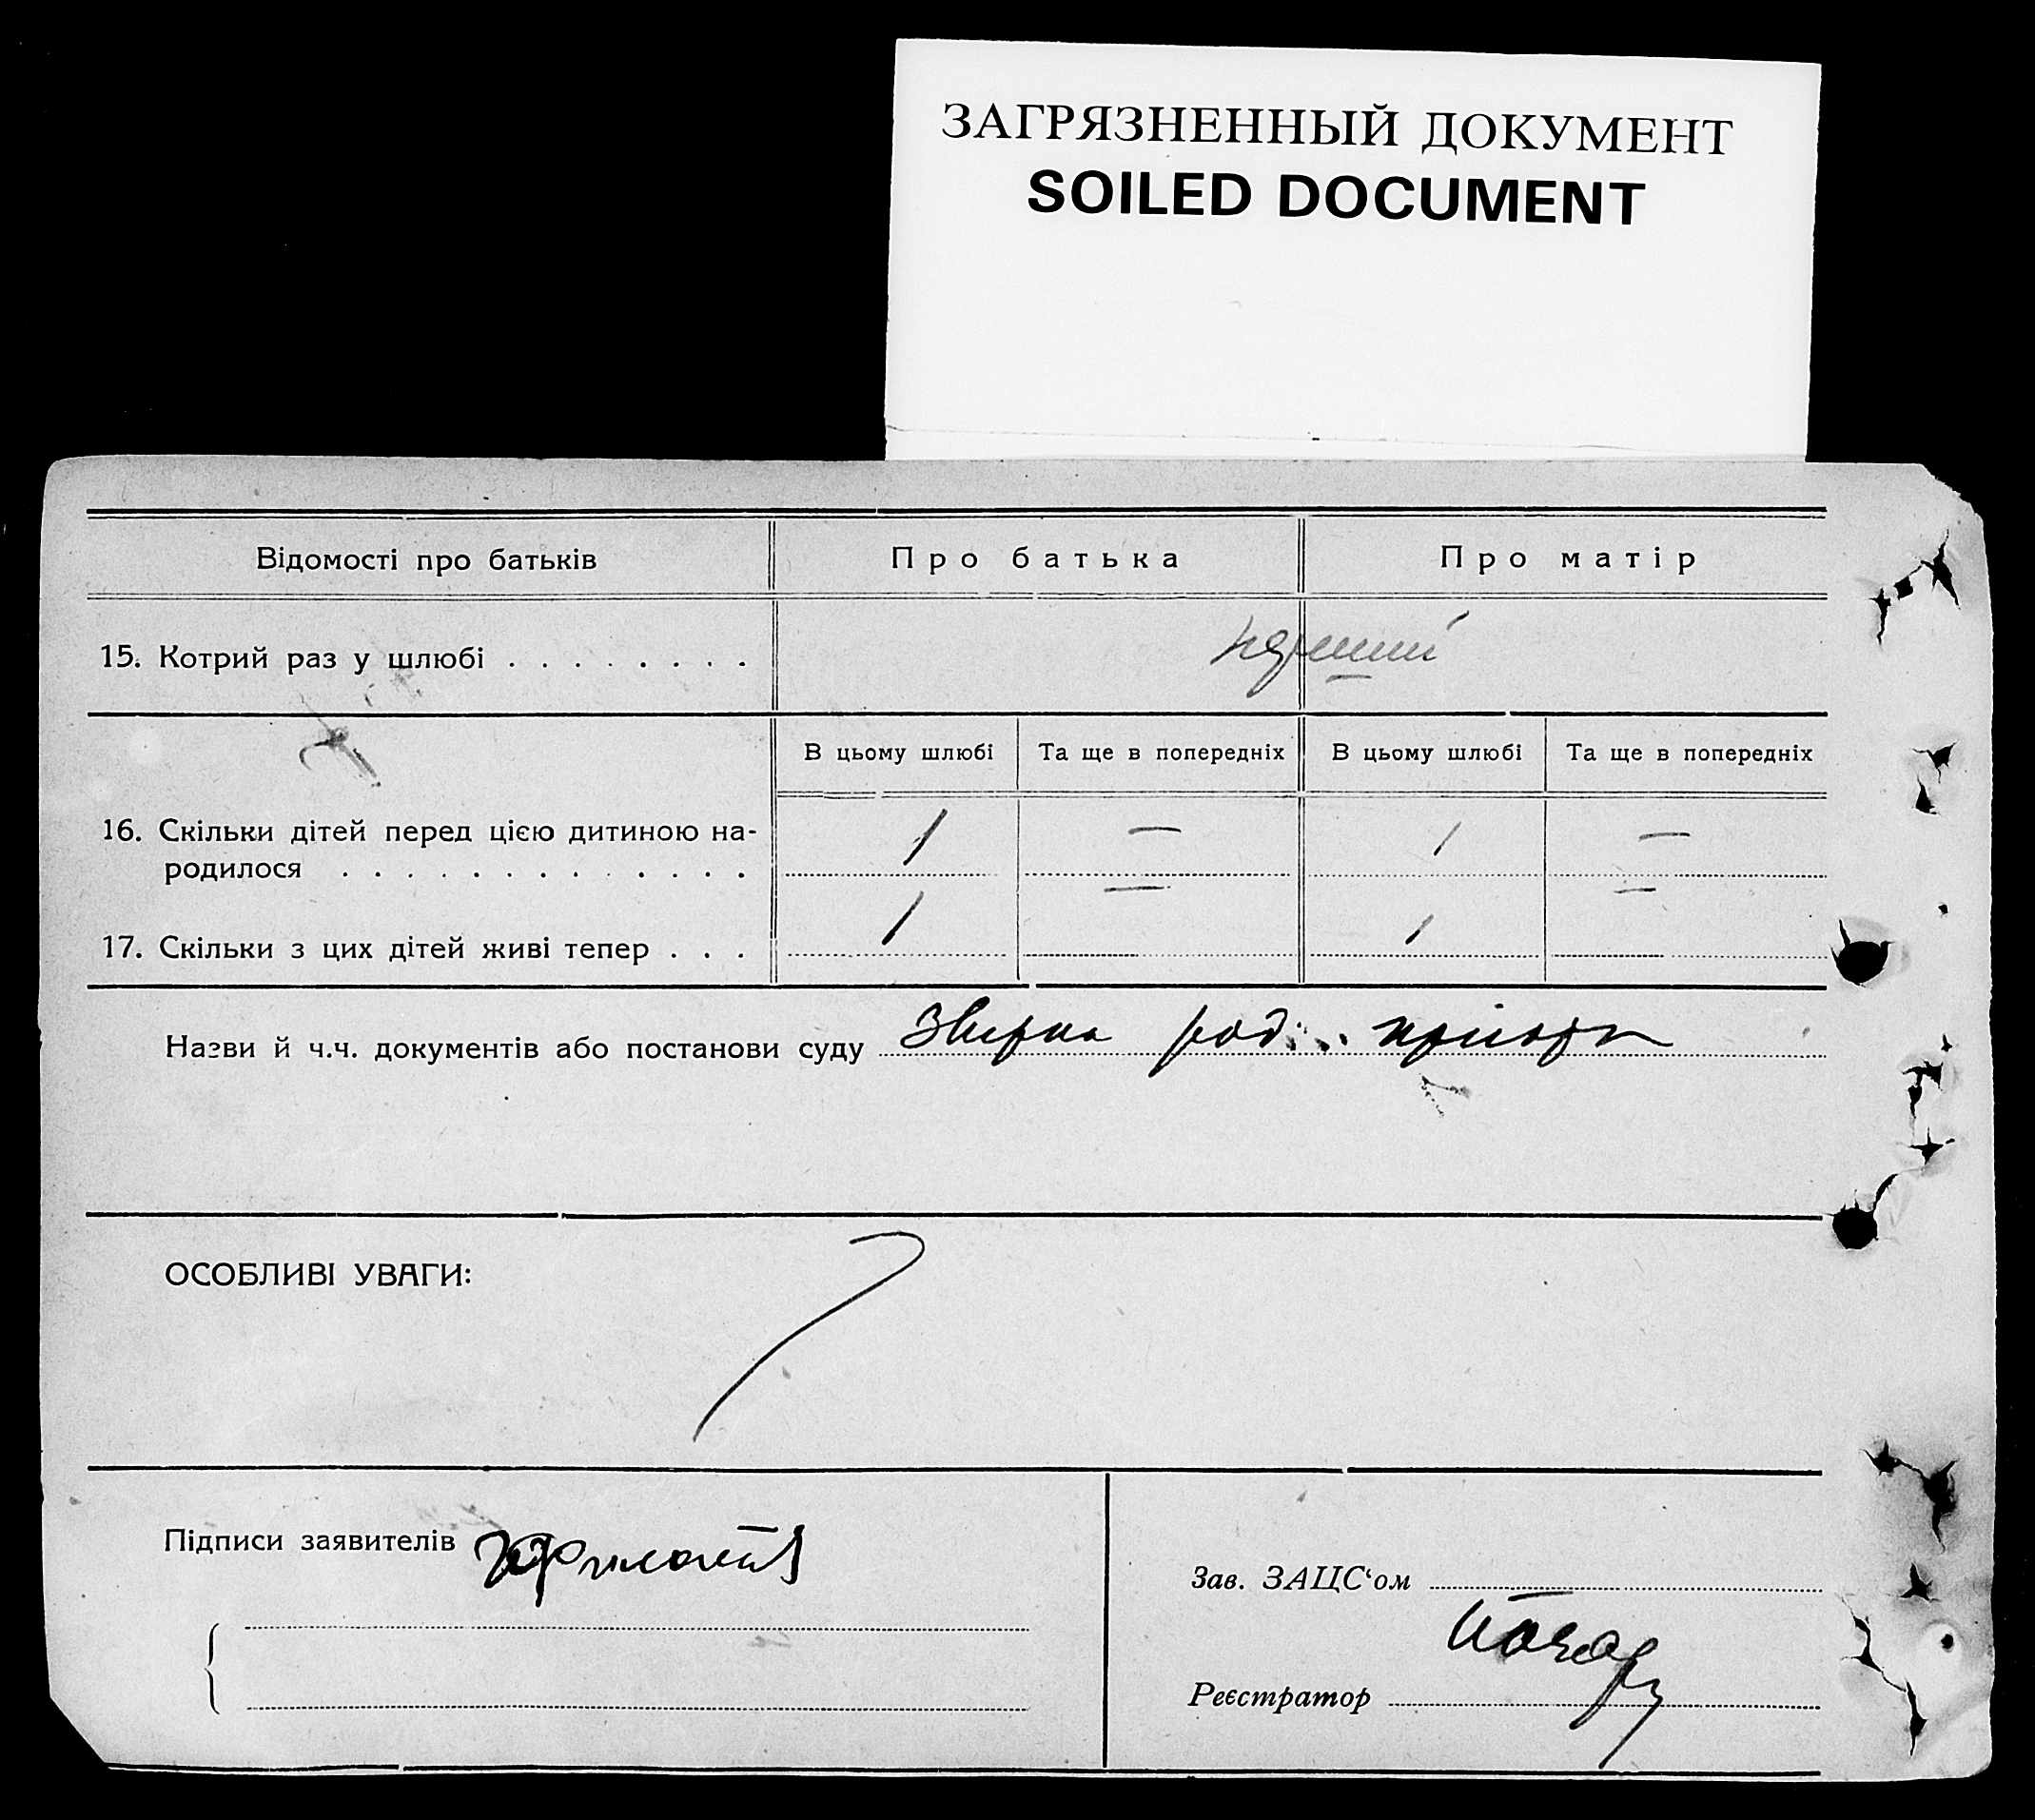 ЗАГРЯЗНЕННЫЙ ДОКУМЕНТ
SOILED DOCUMENT
Відомості про батьків Про батька Про матір
15. Котрий раз у шлюбі . . . . . . . . перший
В цьому шлюбі Та ще в попередніх В цьому шлюбі Та ще в попередніх
16. Скільки дітей перед цією дитиною на-
родилося . . . . . . . . . . . . . 1 — 1 —
17. Скільки з цих дітей живі тепер . . . 1 — 1 —
Назви й ч.ч. документів або постанови суду род.
ОСОБЛИВІ УВАГИ:
Підписи заявителів
Зав. ЗАЦС‘ом
Реєстратор